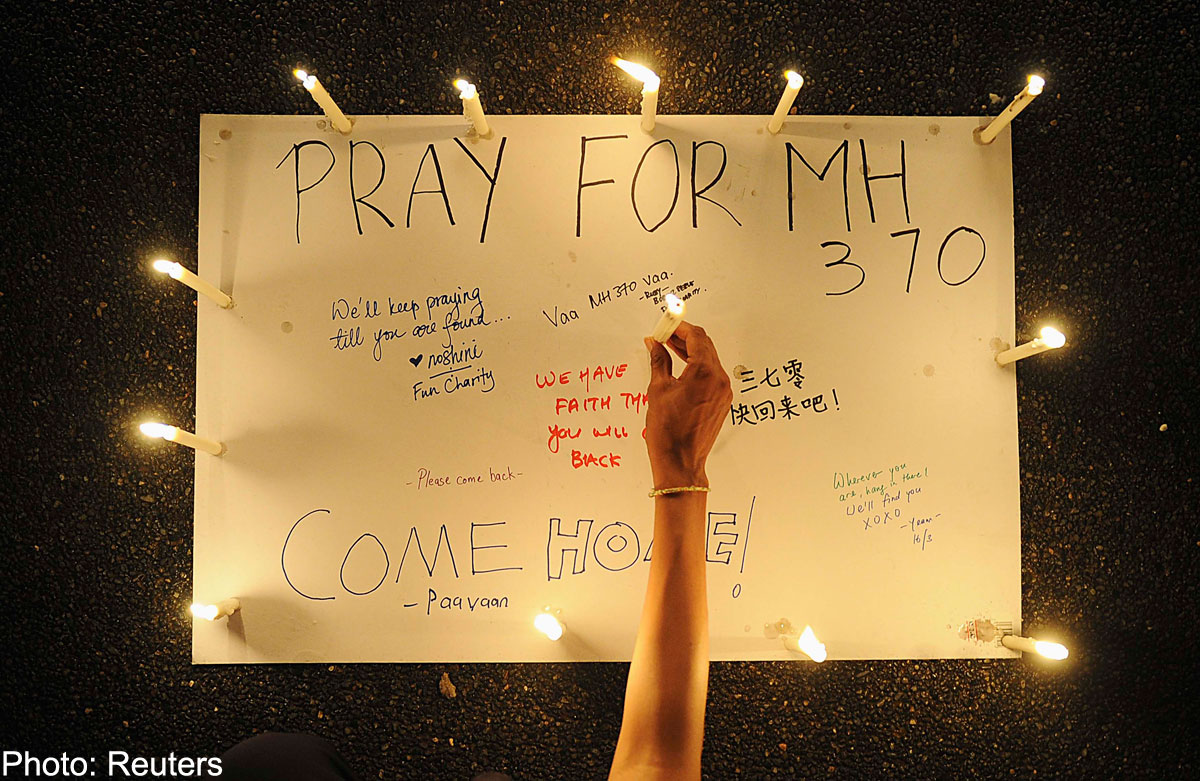 PRAY FOR MH
370
We'll keep praying
till you are found...
♥ noshini
Fun Charity
Vaa MH370 Vaa.
WE HAVE
FAITH
YOU WILL
BACK
三七零
快回来吧!
-Please come back-
Wherever you
are, hang in there!
We'll find you
XOXO
16/3
COME HOME!
- Paavaan
Photo: Reuters